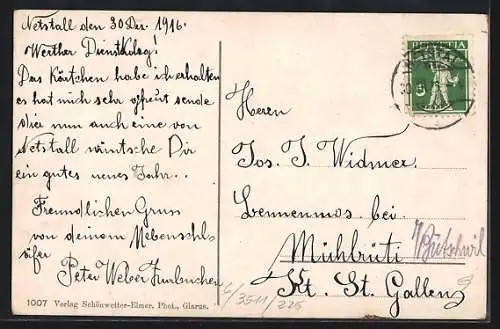 Netstall den 30 Dez. 1916.
Werther Dienstkoleg.
Das Kärtchen habe ich erhalten
es hat mich sehr gefreut sende
dier nun auch eine von
Netstall wüntsche Dir
ein gutes neues Jahr..
Freundlichen Gruss
von deinem
Peter Weber
1007 Verlag Schönwetter-Elmer. Phot., Glarus.
HELVETIA
5
Herrn
Jos. J. Widmer.
Lennenmos bei
Mühlrüti Bütschwil
Kt. St. Gallen